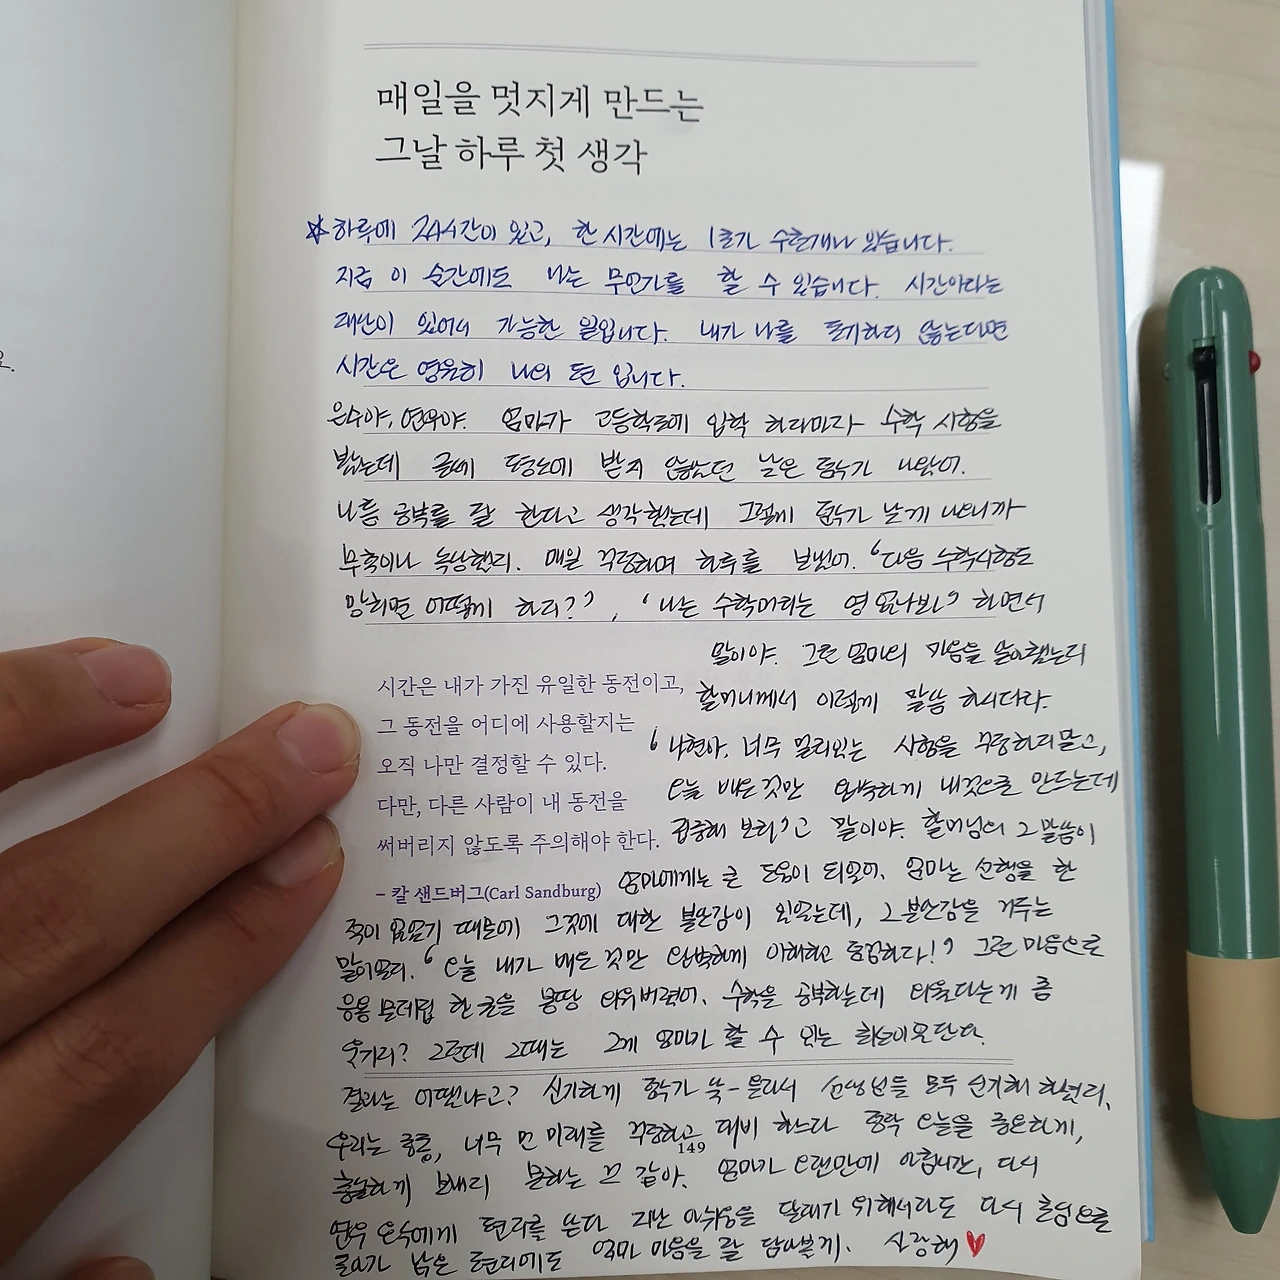 매일을 멋지게 만드는
그날 하루 첫 생각
☆하루에 24시간이 있고, 한 시간에는 1초가 수천개나 있습니다.
지금 이 순간에도 나는 무언가를 할 수 있습니다. 시간이라는
재산이 있어서 가능한 일입니다. 내가 나를 포기하지 않는다면
시간은 영원히 나의 편 입니다.
은수야, 연우야. 엄마가 고등학교에 입학 하자마자 수학 시험을
봤는데 글쎄 평소에 받지 않았던 낮은 점수가 나왔어.
나름 공부를 잘 한다고 생각했는데 그렇게 점수가 낮게 나오니까
무척이나 속상했지. 매일 걱정하며 하루를 보냈어. '다음 수학시험도
망치면 어떻게 하지?', '나는 수학머리는 영 없나봐' 하면서
말이야. 그런 엄마의 마음을 눈치챘는지
할머니께서 이렇게 말씀 하시더라.
시간은 내가 가진 유일한 동전이고,
그 동전을 어디에 사용할지는
오직 나만 결정할 수 있다.
다만, 다른 사람이 내 동전을
써버리지 않도록 주의해야 한다.
– 칼 샌드버그(Carl Sandburg)
'나현아, 너무 멀리있는 시험을 걱정하지말고,
오늘 배운 것만 완벽하게 내것으로 만드는데
집중해 보렴'고 말이야. 할머님의 그 말씀이
엄마에게는 큰 도움이 되었어. 엄마는 선행을 한
적이 없었기 때문에 그것에 대한 불안감이 있었는데, 그 불안감을 거두는
말이었지. '오늘 내가 배운 것만 완벽하게 이해하고 통합하다!' 그런 마음으로
응용 문제집 한 권을 몽땅 외워버렸어. 수학을 공부하는데 외운다는게 좀
웃기지? 그런데 그때는 그게 엄마가 할 수 있는 최선이었단다.
결과는 어땠냐고? 신기하게 점수가 쑥- 올라서 선생님들 모두 신기해 하셨지.
우리는 종종, 너무 먼 미래를 걱정하고 대비 하느라 정작 오늘을 중요하게,
149
충실하게 보내지 못하는 것 같아. 엄마가 오랜만에 아침시간, 다시
연우 은수에게 편지를 쓴다. 지난 아쉬움을 달래기 위해서라도 다시 힘으로
가 담은 편지에도 엄마 마음을 잘 담아볼게. 사랑해♥